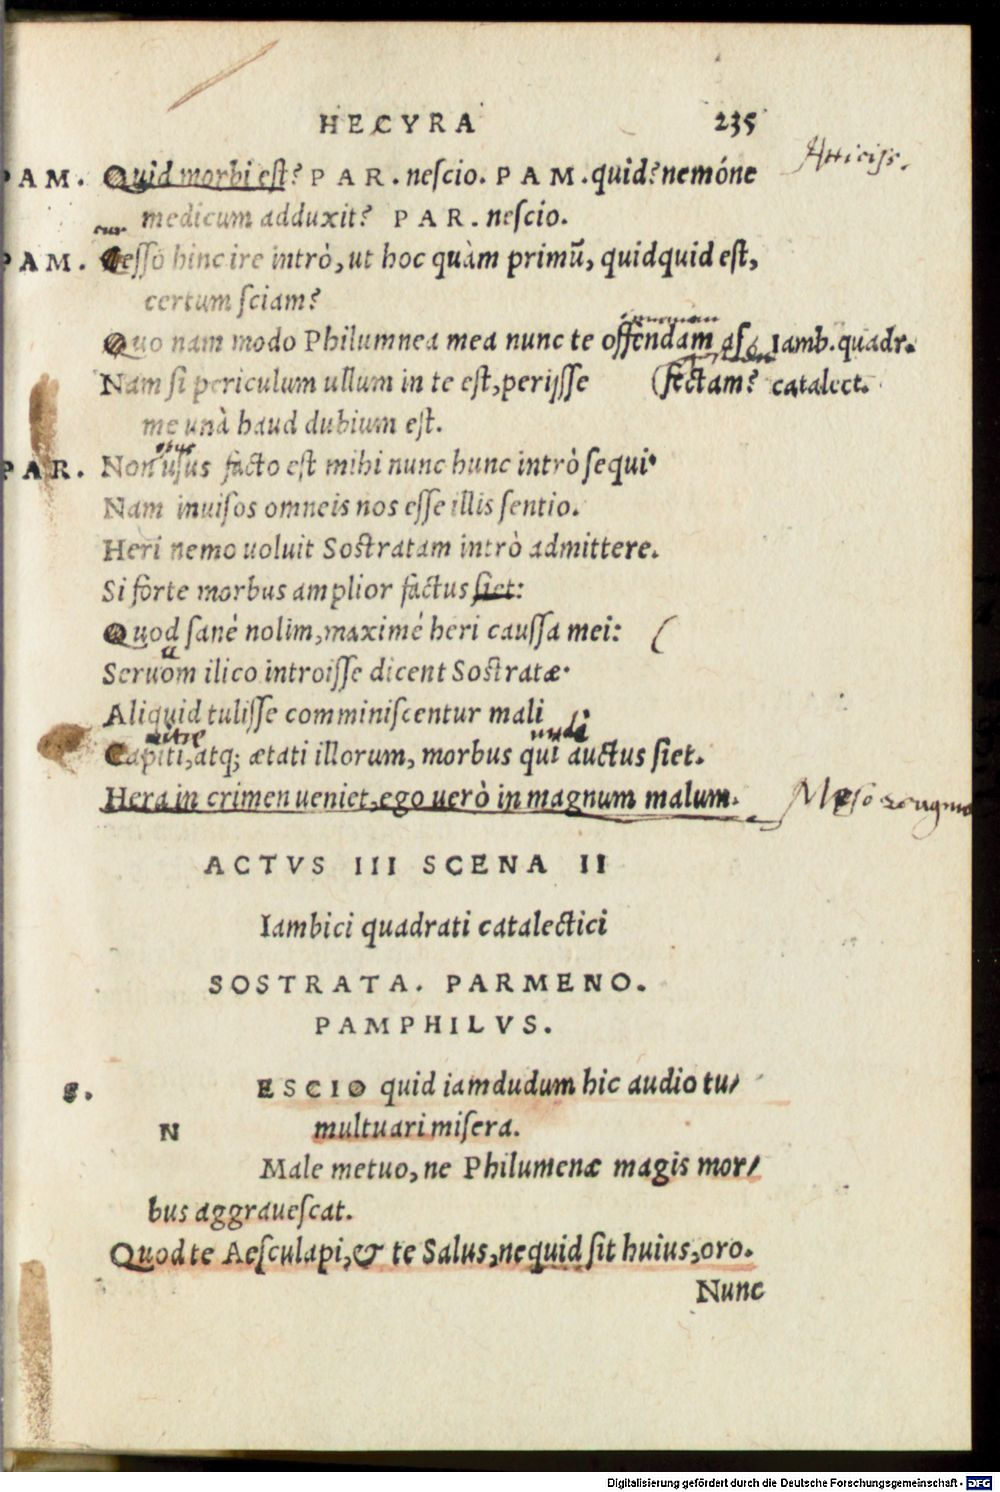 HECYRA 235
PAM. Quid morbi eſt? PAR. neſcio. PAM. quid? nemóne
Atticiſſ.
medicum adduxit? PAR. neſcio.
cur
PAM. Ceſſo hinc ire intrò, ut hoc quàm primũ, quidquid eſt,
certum ſciam?
Quo nam modo Philumnea mea nunc te offendam aſ⸗ Iamb. quadr.
Nam ſi periculum ullum in te eſt, perijſſe (fectam? catalect.
me unà haud dubium eſt.
opus
PAR. Non uſus facto eſt mihi nunc hunc intrò ſequi·
Nam inuiſos omneis nos eſſe illis ſentio.
Heri nemo uoluit Soſtratam intrò admittere.
Si forte morbus amplior factus ſiet:
Quod ſané nolim, maximé heri cauſſa mei: (
u
Seruom ilico introiſſe dicent Soſtratæ·
Aliquid tuliſſe comminiſcentur mali
vitæ unde
Capiti, atq; ætati illorum, morbus qui auctus ſiet.
Hera in crimen ueniet, ego uerò in magnum malum.
ACTVS III SCENA II
Iambici quadrati catalectici
SOSTRATA. PARMENO.
PAMPHILVS.
S. ESCIO quid iamdudum hic audio tu⸗
N multuari miſera.
Male metuo, ne Philumenæ magis mor⸗
bus aggraueſcat.
Quod te Aeſculapi, & te Salus, nequid ſit huius, oro.
Nunc
Digitalisierung gefördert durch die Deutsche Forschungsgemeinschaft - DFG